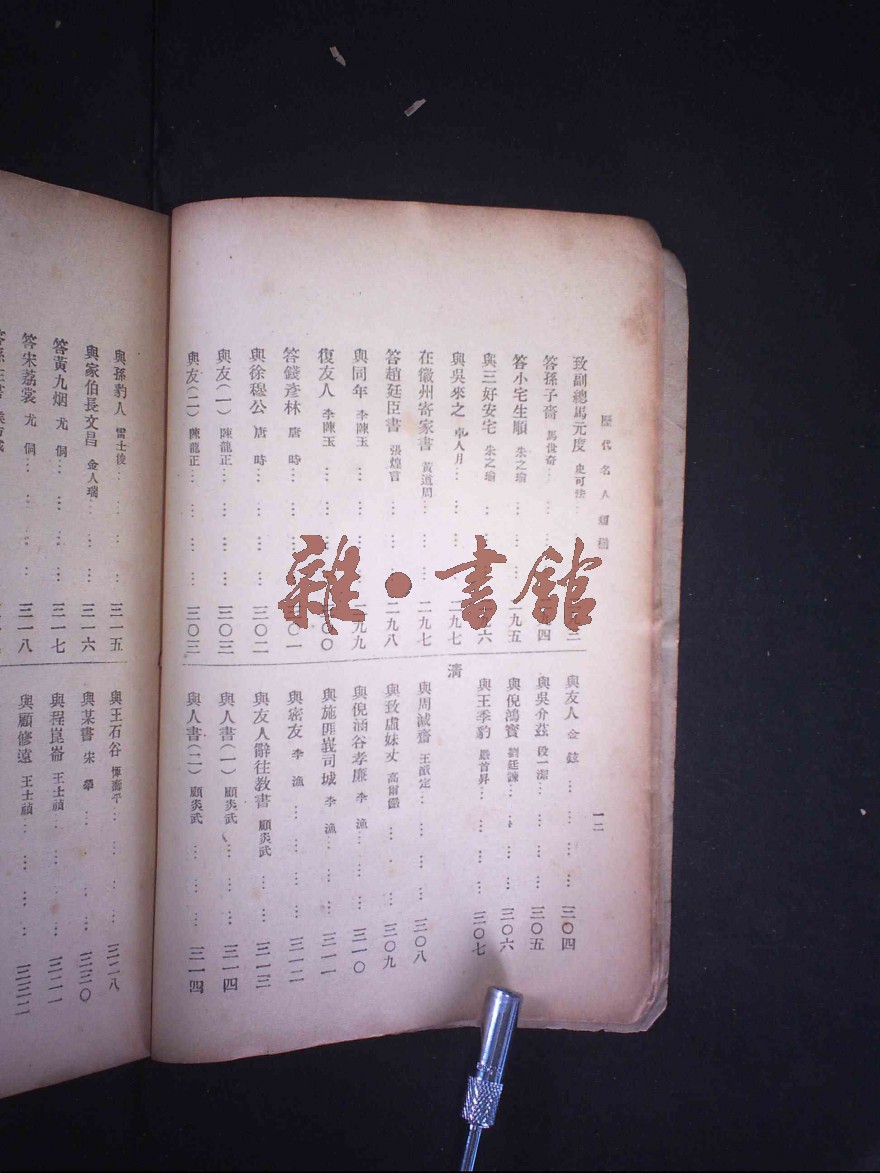 歷代名人短札
一二
致副總馬元度 史可法
答孫子嗇 馬世奇
答小宅生順 朱之瑜 二九五
與三好安宅 朱之瑜
與吳來之 卓人月 二九七
在徽州寄家書 黃道周 二九七
答趙廷臣書 張煌言 二九八
與同年 李陳玉 二九九
復友人 李陳玉 三〇〇
答錢彥林 唐時 三〇一
與徐穆公 唐時 三〇二
與友(一) 陳龍正 三〇三
與友(二) 陳龍正 三〇三
與友人 金鉉 三〇四
與吳介茲 段一潔 三〇五
與倪鴻寶 劉廷諫 三〇六
與王季豹 嚴首昇 三〇七
清
與周減齋 王猷定 三〇八
與致虛妹丈 高爾儼 三〇九
與倪涵谷孝廉 李漁 三一〇
與施匪莪司城 李漁 三一一
與密友 李漁 三一二
與友人辭往教書 顧炎武 三一三
與人書(一) 顧炎武 三一四
與人書(二) 顧炎武 三一四
與孫豹人 雷士俊 三一五
與家伯長文昌 金人瑞 三一六
答黃九烟 尤侗 三一七
答宋荔裳 尤侗 三一八
與王石谷 惲壽平 三二八
與某書 宋犖 三三〇
與程崑崙 王士禎 三二一
與顧修遠 王士禎 三三二
雜·書館